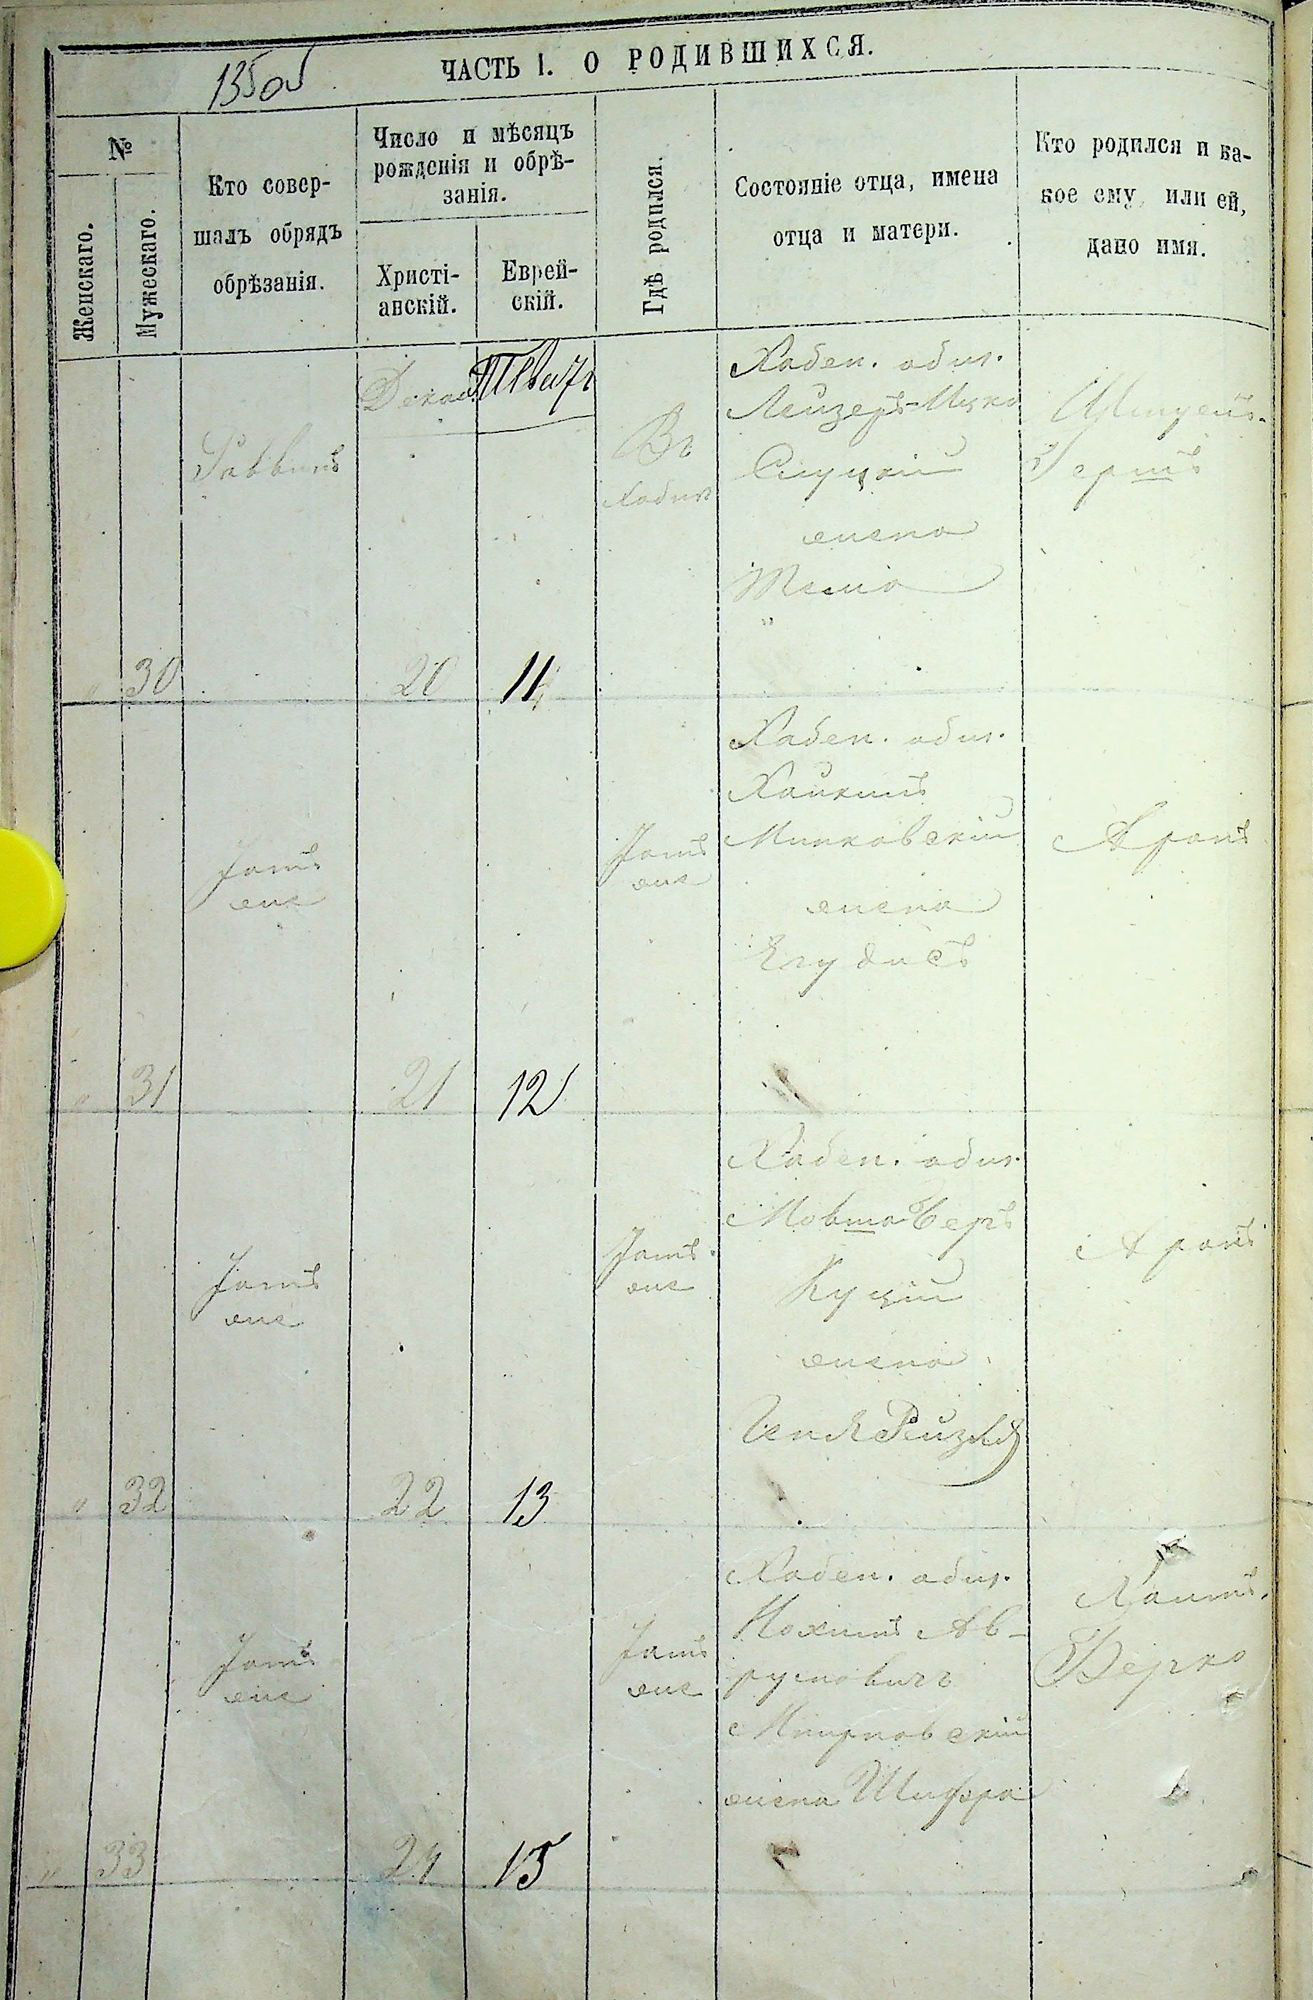 135об
ЧАСТЬ I. О РОДИВШИХСЯ.
№
Женскаго.
Мужескаго.
Кто совер-
шалъ обрядъ
обрѣзанія.
Число и мѣсяцъ
рожденія и обрѣ-
занія.
Христі-
анскій.
Еврей-
скій.
Гдѣ родился.
Состояніе отца, имена
отца и матери.
Кто родился и ка-
кое ему, или ей,
дано имя.
"
30
Раввинъ
Декаб.
20
11
Въ
Хабен. обыв.
Лейзеръ-Ицко
Слуцкій
жена
Шмуель-
Гершъ
"
31
Тотъ
же
21
12
Тотъ
же
Хабен. обыв.
Хаимъ
Минковскій
жена
Егудисъ
Аронъ
"
32
Тотъ
же
22
13
Тотъ
же
Хабен. обыв.
Мовша-Беръ
Куцій
жена
Рейзля
Аронъ
"
33
Тотъ
же
24
15
Тотъ
же
Хабен. обыв.
Нохимъ Ав-
румовичъ
жена Шифра
Хаимъ-
Берко